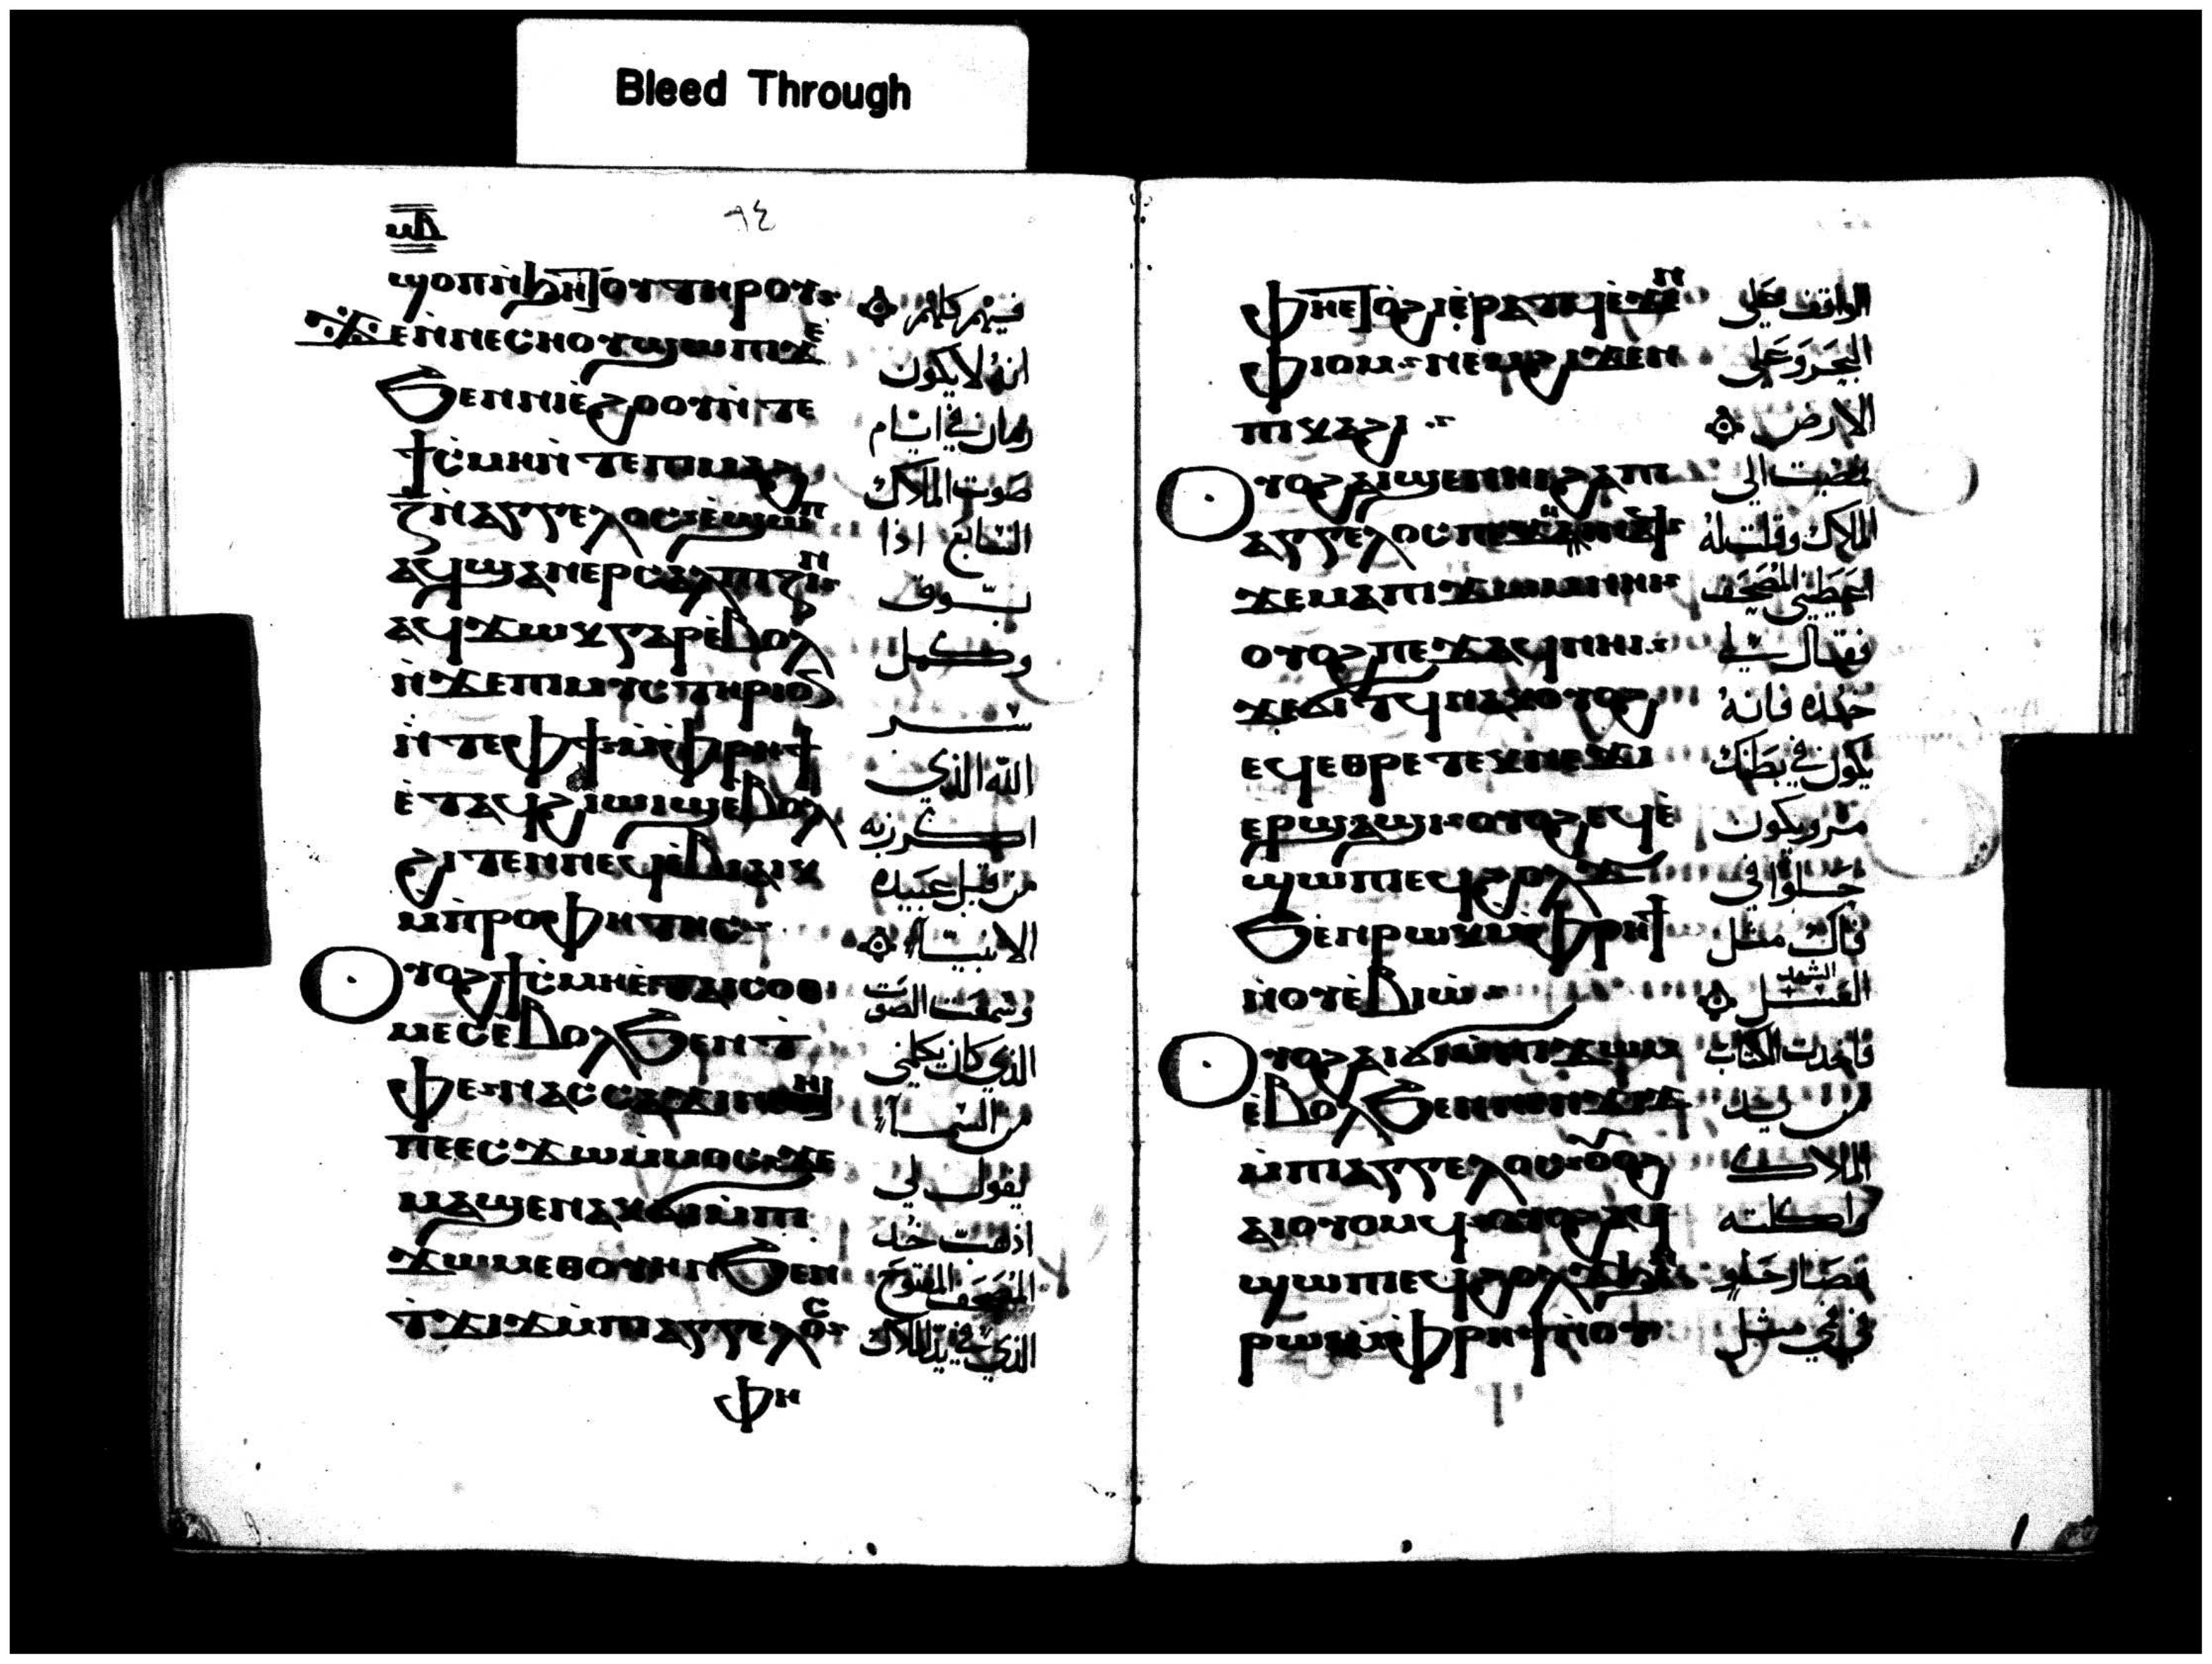 Bleed Through
ⲙⲇ
٩٤
ϣⲟⲡ ⲛ̀ϧⲏⲧⲟⲩ ⲧⲏⲣⲟⲩ
فيهم كلهم
ϫⲉ ⲛ̀ⲛⲉⲥⲛⲟⲩ ϣⲱⲡⲓ ϫⲉ
انه لا يكون
ϧⲉⲛ ⲛⲓⲉ̀ϩⲟⲟⲩ ⲛ̀ⲧⲉ
زمان في ايام
ϯⲥ̀ⲙⲏ ⲛ̀ⲧⲉ ⲡⲓⲙⲁϩ
صوت الملاك
ⲍ̅ ⲛ̀ⲁⲅⲅⲉⲗⲟⲥ ⲉ̀ϣⲱⲡ
السابع اذا
ⲁϥϣⲁⲛⲉⲣⲥⲁⲗⲡⲓⲍⲓⲛ
يبوق
ⲁϥϫⲱⲕ ⲅⲁⲣ ⲉ̀ⲃⲟⲗ
وكمل
ⲛ̀ϫⲉ ⲡⲓⲙⲩⲥⲧⲏⲣⲓⲟⲛ
سر
ⲛ̀ⲧⲉ ⲫϯ ⲙ̀ⲫⲣⲏϯ
الله الذي
ⲉ̀ⲧⲁϥϩⲓϣⲉⲛⲛⲟⲩϥⲓ ⲉ̀ⲃⲟⲗ
اكرز به
ϩⲓⲧⲉⲛ ⲛⲉϥⲉ̀ⲃⲓⲁⲓⲕ
من قبل عبيده
ⲙ̀ⲡⲣⲟⲫⲏⲧⲏⲥ
الانبياء
ⲟⲩⲟϩ ϯⲥ̀ⲙⲏ ⲉ̀ⲧⲁⲓⲥⲟⲑ
وسمعت الصوت
ⲙⲉⲥ ⲉ̀ⲃⲟⲗ ϧⲉⲛ ⲧ̀
الذي كان يكلمني
ⲫⲉ ⲛⲁⲥⲥⲁϫⲓ ⲛⲉⲙⲏⲓ
من السماء
ⲡⲉ ⲉⲥϫⲱ ⲙ̀ⲙⲟⲥ ϫⲉ
يقول لي
ⲙⲁϣⲉⲛⲁⲕ ϭⲓ ⲙ̀ⲡⲓ
اذهب خذ
ϫⲱⲙ ⲉⲑⲟⲩⲏⲛ ϧⲉⲛ
المصحف المفتوح
ⲧ̀ϫⲓϫ ⲙ̀ⲡⲓⲁⲅⲅⲉⲗⲟⲥ
الذي في يد الملاك
ⲫⲏ
ⲫⲏⲉⲧⲟ̀ϩⲓ ⲉ̀ⲣⲁⲧϥ ⲉ̀ϫⲉⲛ
الواقف على
ⲫⲓⲟⲙ ⲛⲉⲙ ϩⲓϫⲉⲛ
البحر وعلى
ⲡⲓⲕⲁϩⲓ
الارض
ⲟⲩⲟϩ ⲁⲓϣⲉⲛⲏⲓ ϩⲁ ⲡⲓ
فمضيت الى
ⲁⲅⲅⲉⲗⲟⲥ ⲡⲉϫⲏⲓ ⲛⲁϥ
الملاك وقلت له
ϫⲉ ⲙⲁ ⲡⲓϫⲱⲙ ⲛⲏⲓ
اعطني المصحف
ⲟⲩⲟϩ ⲡⲉϫⲁϥ ⲛⲏⲓ
فقال لي
ϫⲉ ϭⲓⲧϥ ⲛⲁⲕ ⲟⲩⲟϩ
خذه فانه
ⲉϥⲉⲑⲣⲉ ⲧⲉⲕⲛⲉϫⲓ
يكون في بطنك
ⲉⲣϣⲁϣⲓ ⲟⲩⲟϩ ⲉϥⲉ̀
مر ويكون
ϣⲱⲡⲓ ⲉϥϩⲟⲗϫ
حلوا في
ϧⲉⲛ ⲣⲱⲕ ⲙ̀ⲫⲣⲏϯ
فاك مثل
ⲛ̀ⲟⲩⲉ̀ⲃⲓⲱ̀
العسل الشهد
ⲟⲩⲟϩ ⲁⲓϭⲓ ⲙ̀ⲡⲓϫⲱⲙ
فاخذت الكتاب
ⲉ̀ⲃⲟⲗ ϧⲉⲛ
من يد
ⲙ̀ⲡⲓⲁⲅⲅⲉⲗⲟⲥ ⲟⲩⲟϩ
الملاك
ⲁⲓⲟⲩⲟⲙϥ ⲟⲩⲟϩ ⲁϥ
واكلته
ϣⲱⲡⲓ ⲉϥϩⲟⲗϫ ϧⲉⲛ
فصار حلو
ⲣⲱⲓ ⲙ̀ⲫⲣⲏϯ ⲛ̀ⲟⲩ
في فمي مثل